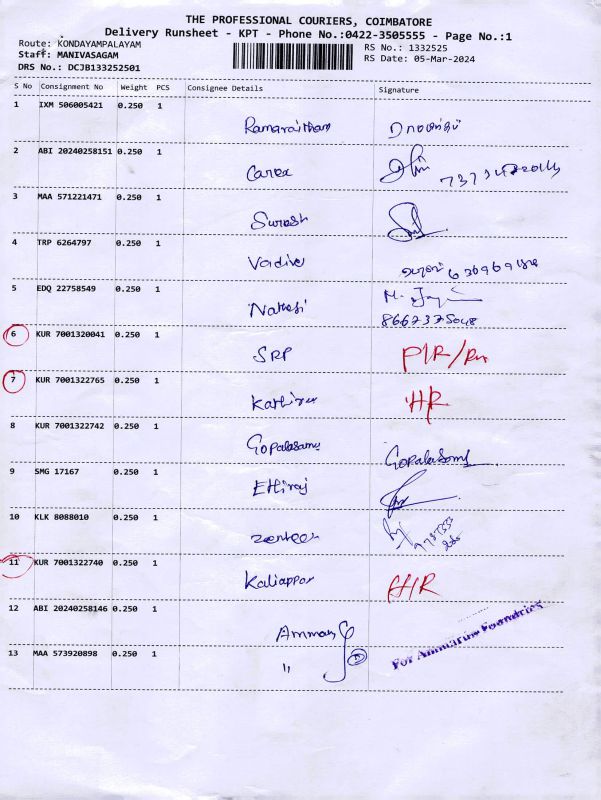 THE PROFESSIONAL COURIERS, COIMBATORE
Delivery Runsheet - KPT - Phone No.:0422-3505555 - Page No.:1
Route: KONDAYAMPALAYAM
Staff: MANIVASAGAM
DRS No.: DCJB133252501
RS No.: 1332525
RS Date: 05-Mar-2024
S No Consignment No Weight PCS Consignee Details Signature
1 IXM 506005421 0.250 1
Ramaraitham
2 ABI 20240258151 0.250 1
Carex
3 MAA 571221471 0.250 1
Suresh
4 TRP 6264797 0.250 1
Vadivel
5 EDQ 22758549 0.250 1
Natesi
8667375048
6 KUR 7001320041 0.250 1
SRP
7 KUR 7001322765 0.250 1
Kathirve HR
8 KUR 7001322742 0.250 1
Gopalasamy Gopalasamy
9 SMG 17167 0.250 1
Ethiraj
10 KLK 8088010 0.250 1
11 KUR 7001322740 0.250 1
Kaliappan HR
12 ABI 20240258146 0.250 1
Amman
For Ammarun Foundries
13 MAA 573920898 0.250 1
"